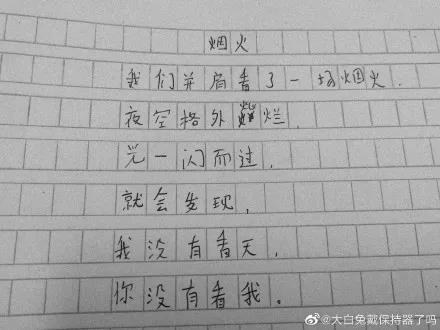 烟火
我们并肩看了一场烟火.
夜空格外灿烂.
光一闪而过.
就会发现,
我没有看天.
你没有看我.
@大白兔戴保持器了吗